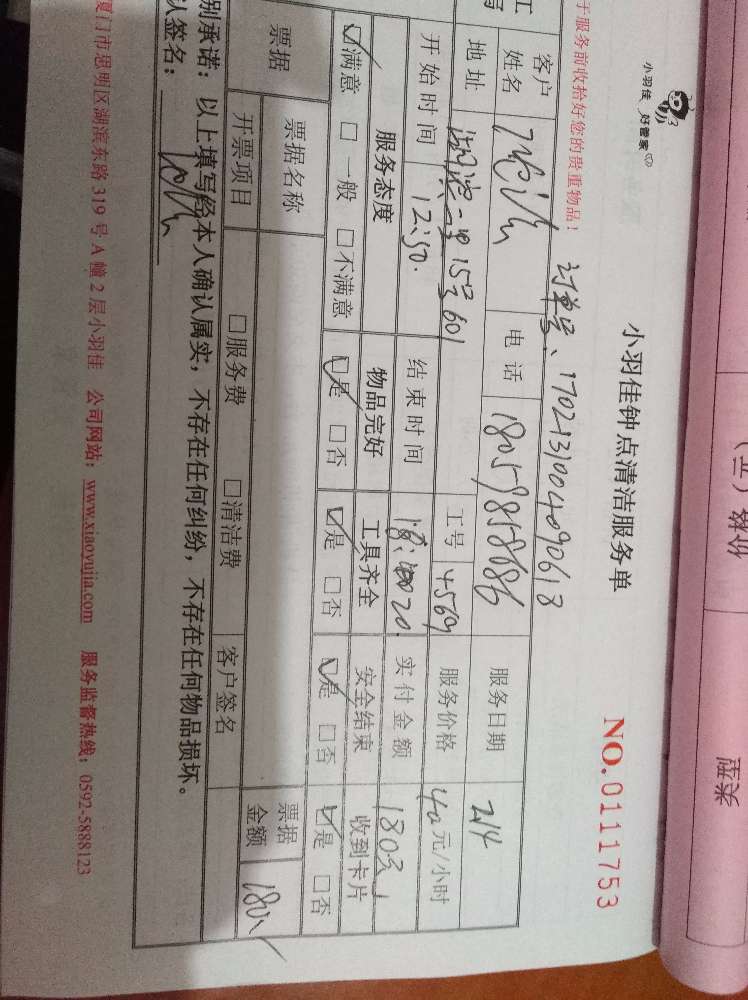 类票
份数（元）
小羽佳 好管家
小羽佳钟点清洁服务单
NO.0111753
于服务前收拾好您的贵重物品！
订单号、1702131004090618
客户
姓名 电话 18059858686 服务日期 2/4
地址 湖滨一里15号601 工号 4569 服务价格 40元/小时
开始时间 12:50. 结束时间 20. 实付金额 180元
服务态度 物品完好 工具齐全 安全结束 收到卡片
☑满意 □一般 □不满意 ☑是 □否 ☑是 □否 ☑是 □否 ☑是 □否
票据 票据名称 票据金额 180
开票项目 □服务费 □清洁费 客户签名
别承诺：以上填写经本人确认属实，不存在任何纠纷，不存在任何物品损坏。
认签名：
厦门市思明区湖滨东路319号A幢2层小羽佳 公司网站：www.xiaoyujia.com 服务监督热线：0592-5888123